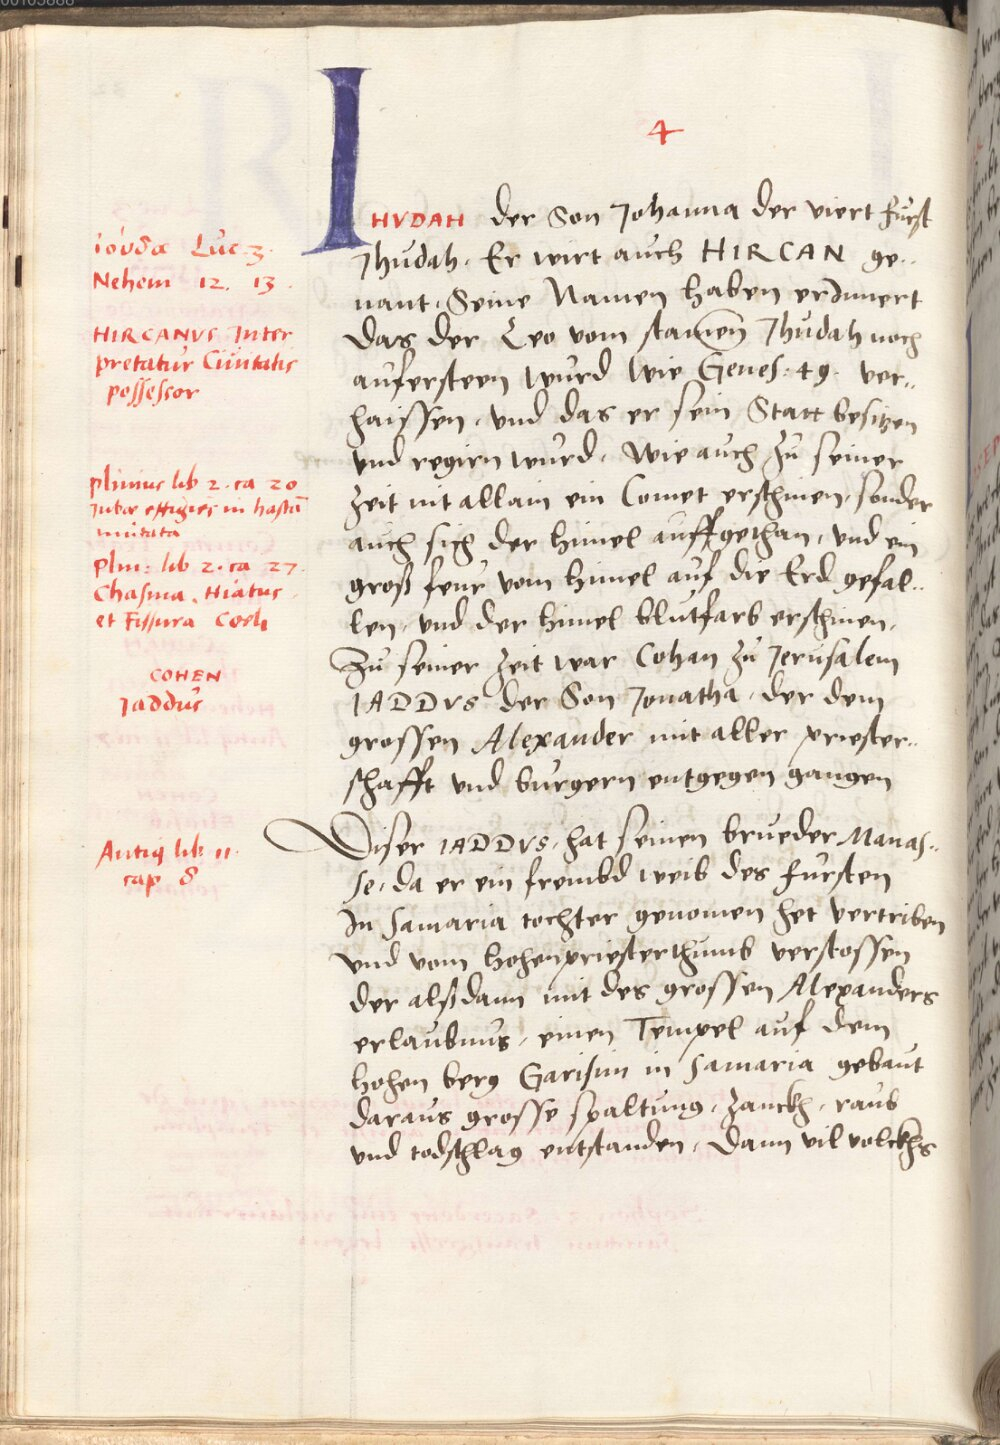 4
IHVDAH der Son Johanna der viert Fürst
Jhudah. Er wirt auch HIRCAN ge..
nant. Seine Namen haben erdinert
das der Leo vom stamen Jhudah noch
aufersteen wurd wie Genes: 49. ver..
haissen, vnd das er sein Statt besitzen
vnd regirn wurd. Wie auch zu seiner
Zeit nit allain ein Comet erschinen, sonder
auch sich der himel auffgethan, vnd ein
groß feur vom himel auf die Erd gefal..
len, vnd der himel blutfarb erschinen.
Zu seiner Zeit war Cohan zu Jerusalem
IADDVS der Son Jonatha, der dem
grossen Alexander mit aller priester..
schafft vnd burgern entgegen gangen
Diser IADDVS, hat seinen brueder Manas..
se, da er ein frembd weib des fursten
In Samaria tochter genomen het vertriben
vnd vom hohenpriesterthumb verstossen
der alßdann mit des grossen Alexanders
erlaubnus, einen Tempel auf dem
hohen berg Garisim in Samaria gebaut
daraus grosse spaltung, zanckh, raub
vnd todschlag entstanden, Dann vil volckhs
ιούδα Luc. 3.
Nehem 12. 13.
HIRCANVS Inter
pretatur Ciuitatis
possessor
plinius lib 2. ca 20
Jubæ effigies in hastā
mutata
Plin: lib 2. ca 27.
Chasma, Hiatus
et Fissura Coeli
COHEN
Jaddus
Antiq lib 11
cap 8